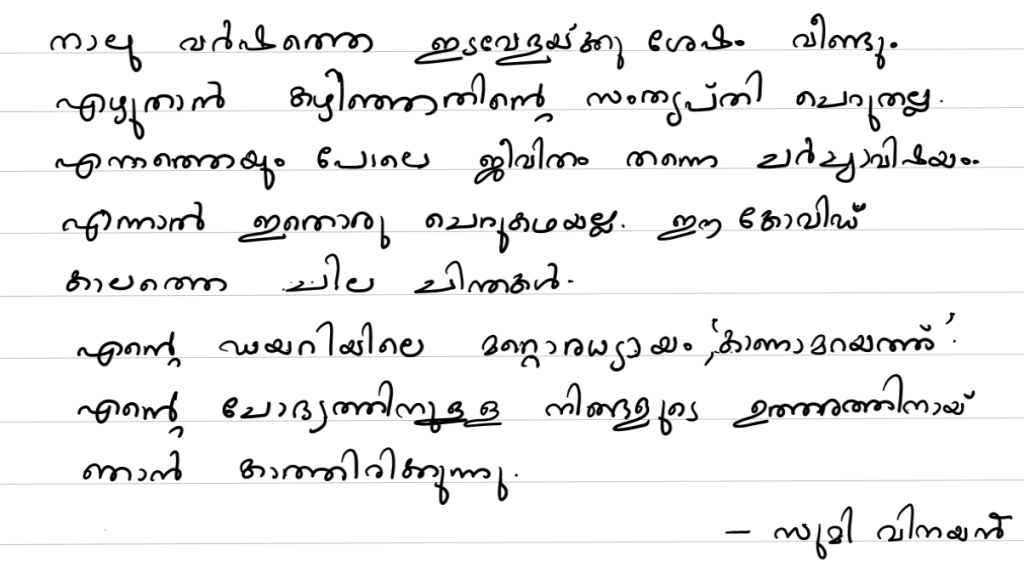 നാലു വർഷത്തെ ഇടവേളയ്ക്കു ശേഷം വീണ്ടും
എഴുതാൻ കഴിഞ്ഞതിന്റെ സംതൃപ്തി ചെറുതല്ല.
എന്നത്തെയും പോലെ ജീവിതം തന്നെ ചർച്ചാവിഷയം.
എന്നാൽ ഇതൊരു ചെറുകഥയല്ല. ഈ കോവിഡ്
കാലത്തെ ചില ചിന്തകൾ.
എന്റെ ഡയറിയിലെ മറ്റൊരധ്യായം, 'കാണാമറയത്ത്'.
എന്റെ ചോദ്യത്തിനുള്ള നിങ്ങളുടെ ഉത്തരത്തിനായ്
ഞാൻ കാത്തിരിക്കുന്നു.
— സുമി വിനയൻ